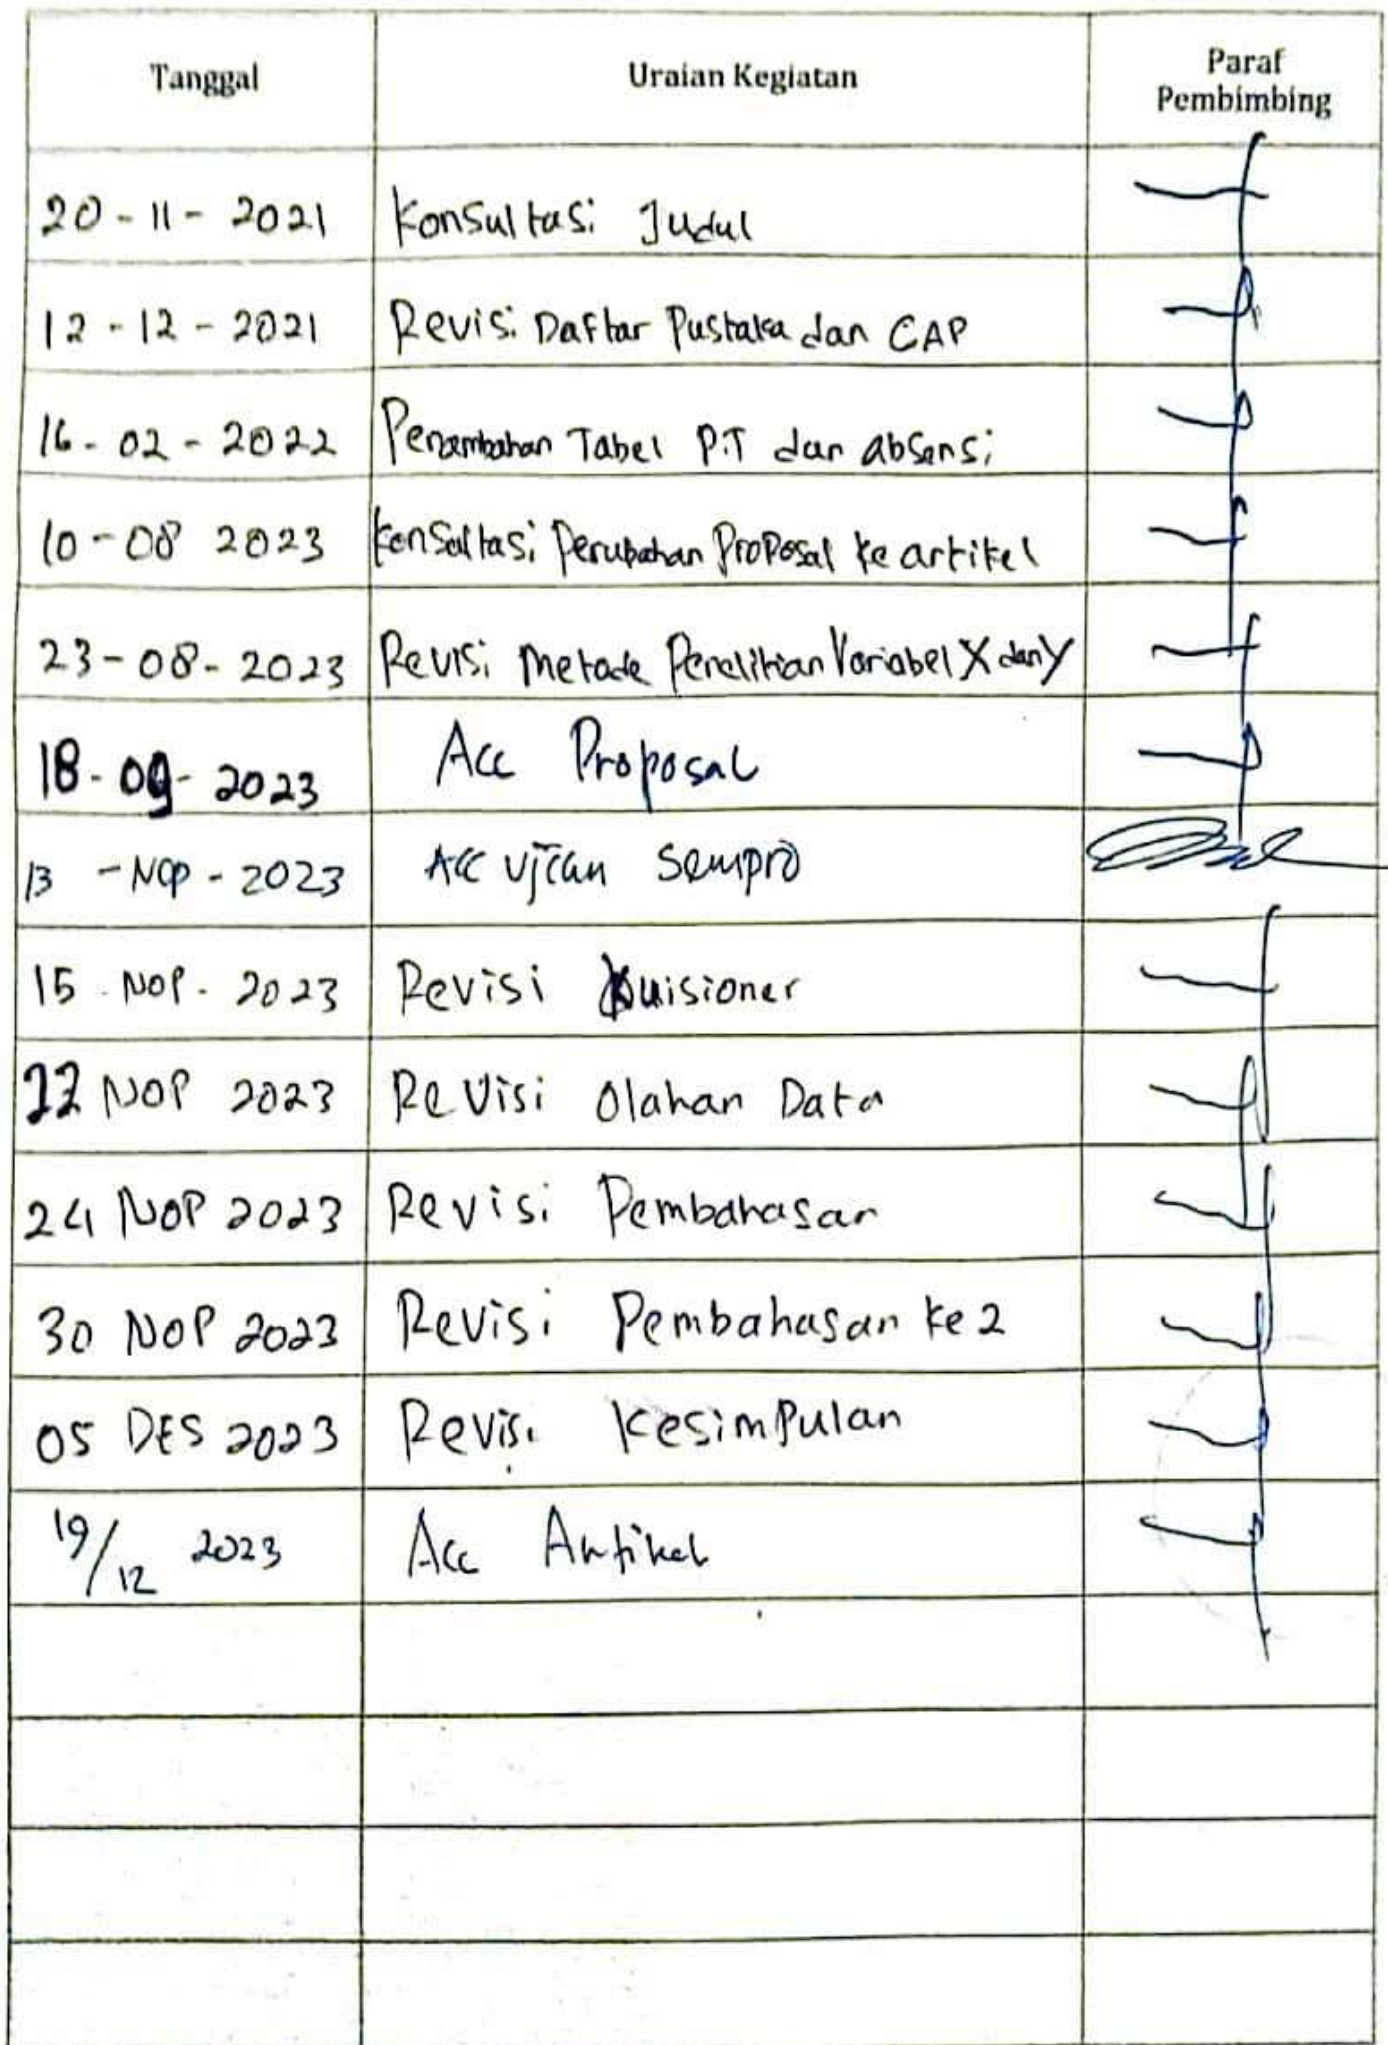 Tanggal Uraian Kegiatan Paraf
Pembimbing
20 - 11 - 2021 Konsultasi Judul
12 - 12 - 2021 Revisi Daftar Pustaka dan CAP
16 - 02 - 2022 Penambahan Tabel P.T dan absensi
10 - 08 2023 Konsultasi Perubahan Proposal ke artikel
23 - 08 - 2023 Revisi Metode Penelitian Variabel X dan Y
18 - 09 - 2023 Acc Proposal
13 - Nop - 2023 Acc Ujian Sempro
15 - NOP - 2023 Revisi Kuisioner
22 NOP 2023 Revisi Olahan Data
24 NOP 2023 Revisi Pembahasan
30 NOP 2023 Revisi Pembahasan ke 2
05 DES 2023 Revisi Kesimpulan
19/12 2023 Acc Artikel